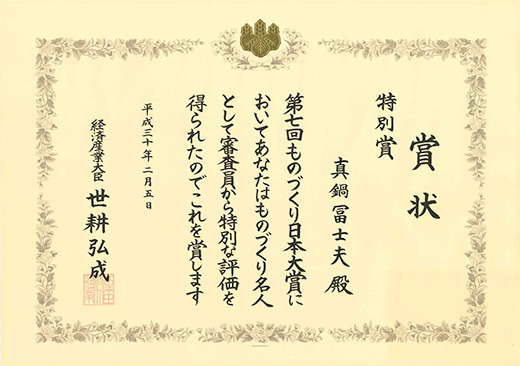 賞状
特別賞
真鍋冨士夫 殿
第七回ものづくり日本大賞に
おいてあなたはものづくり名人
として審査員から特別な評価を
得られたのでこれを賞します
平成三十年二月五日
経済産業大臣 世耕弘成